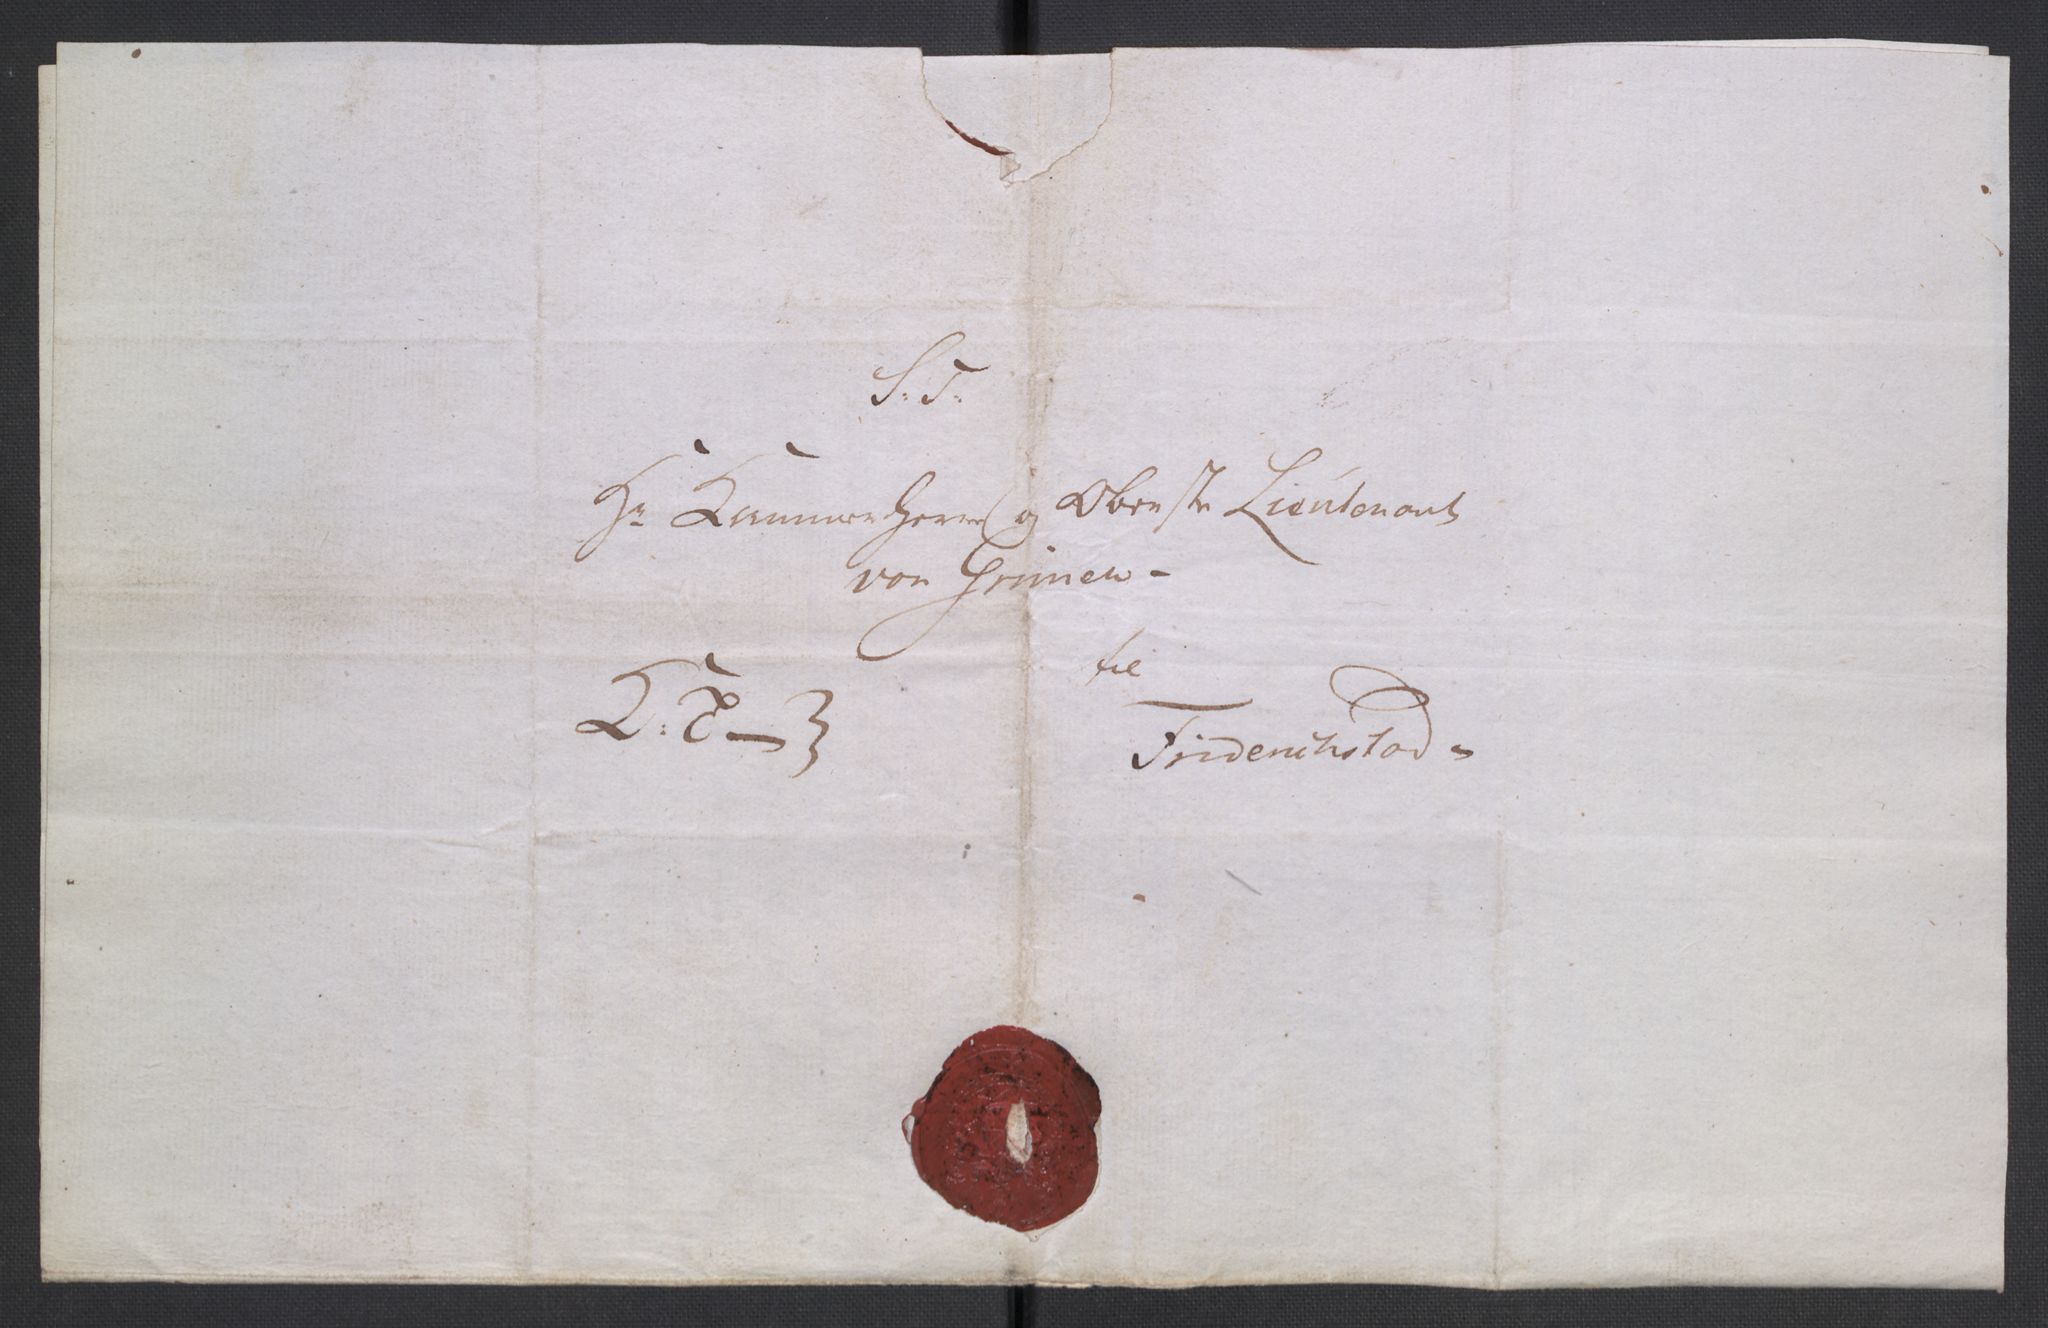 S. T.
Hr Kammerherre og Obenste Lieutenant
von Grüner
til
Friderichstad